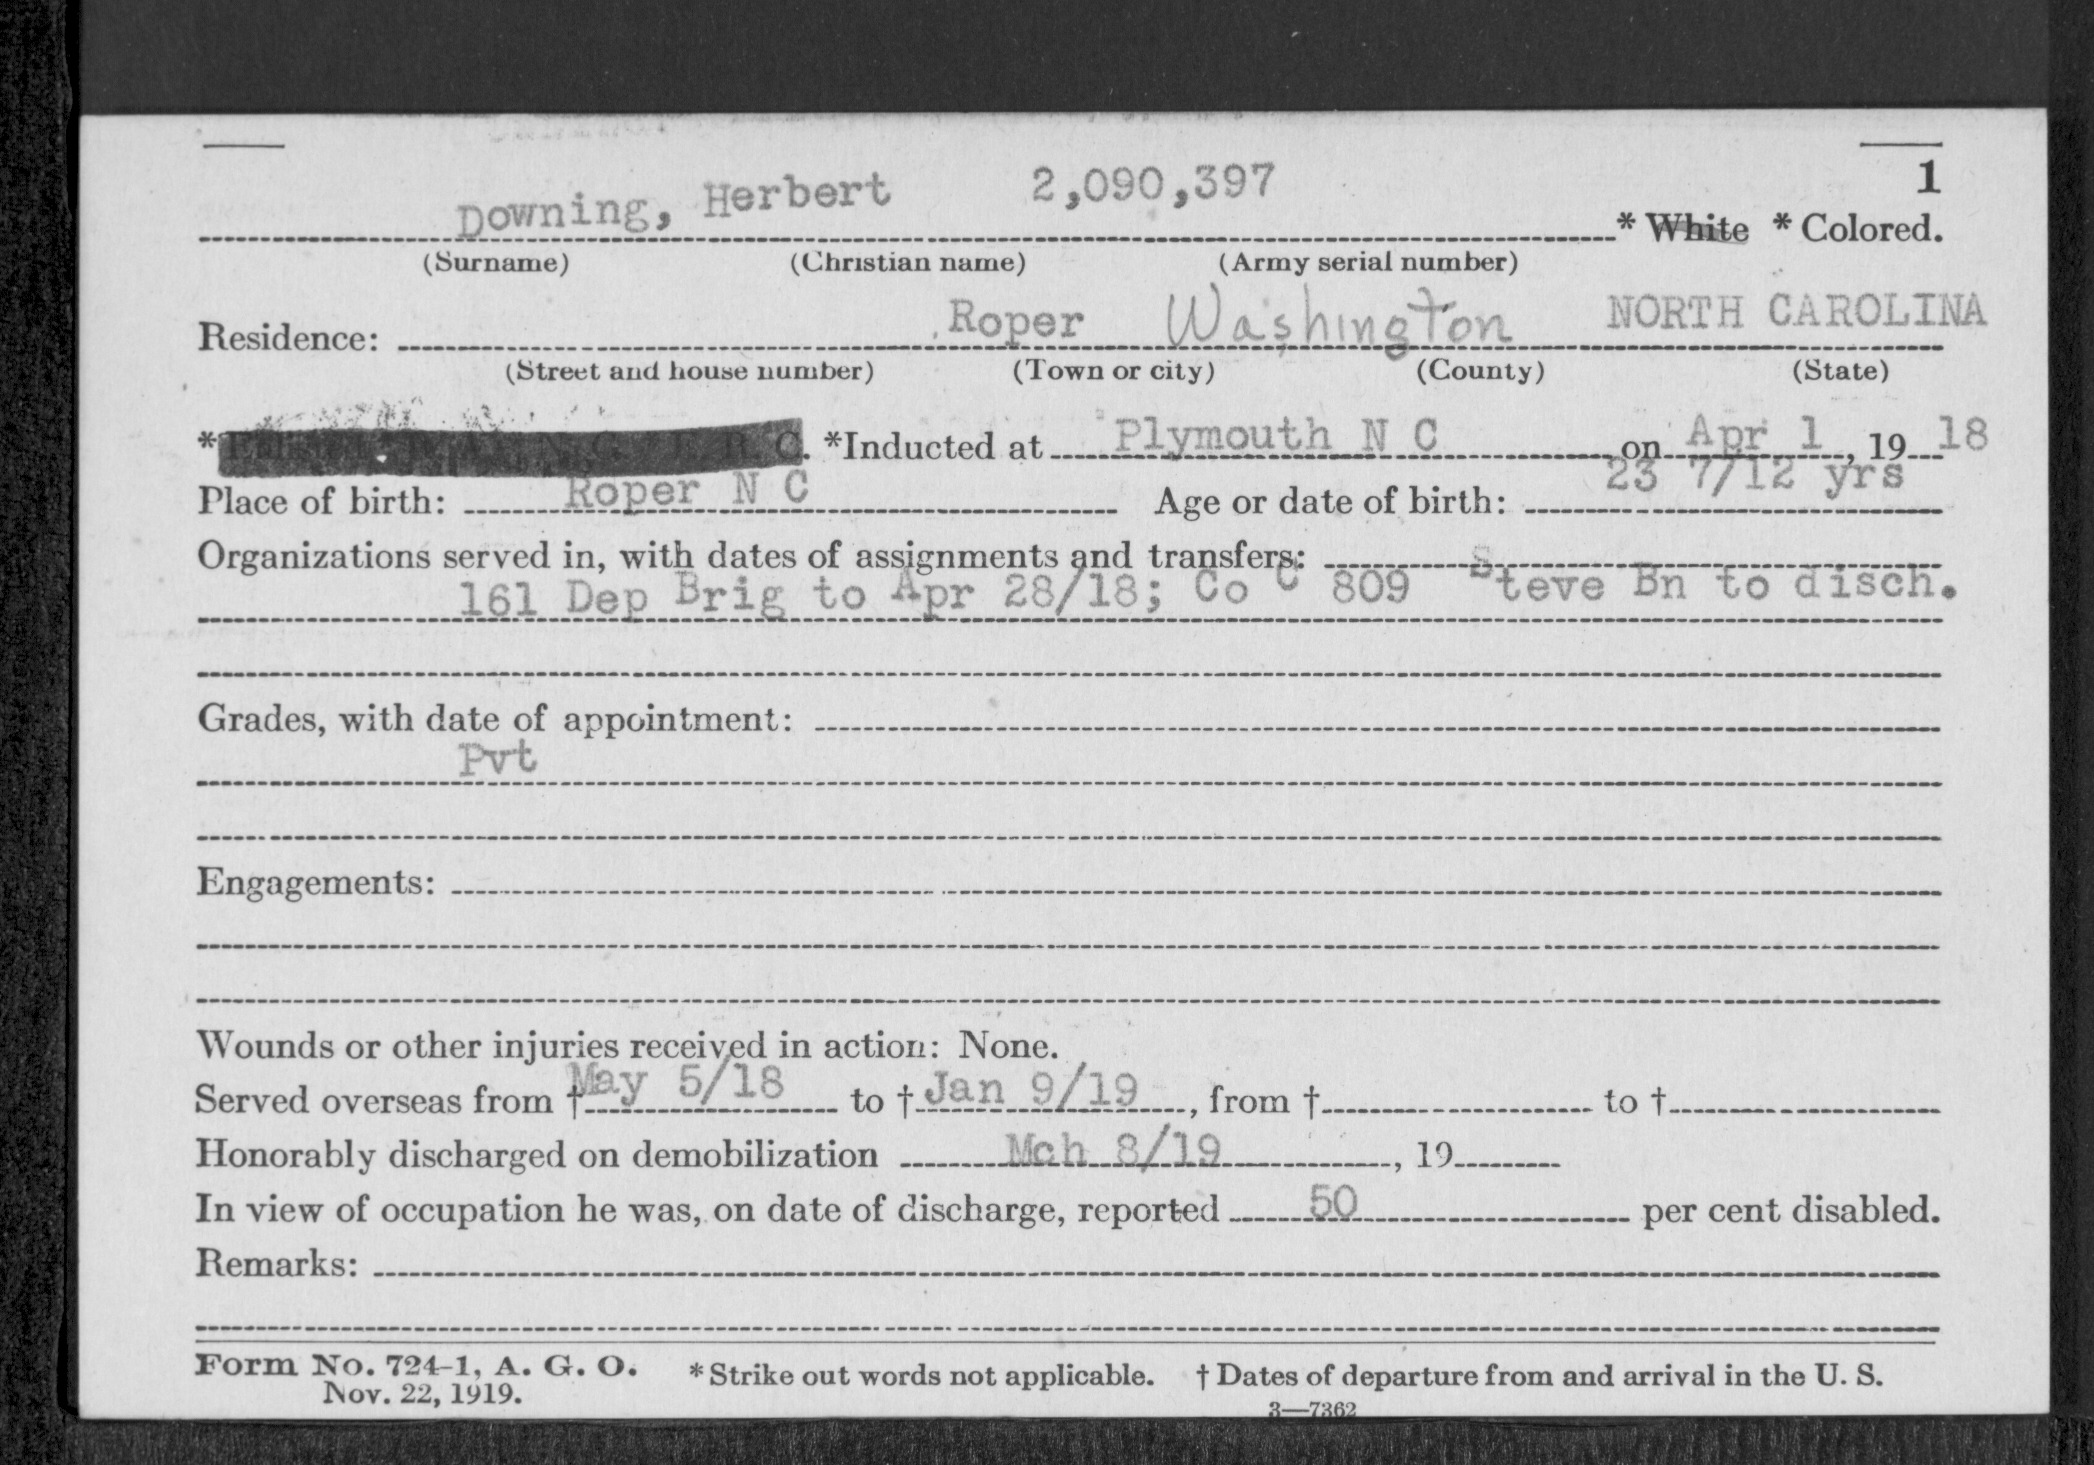 1
Downing, Herbert 2,090,397 * White * Colored.
(Surname) (Christian name) (Army serial number)
Residence: Roper Washington NORTH CAROLINA
(Street and house number) (Town or city) (County) (State)
* Enlisted R. A. N. G. E. R. C. *Inducted at Plymouth N C on Apr 1, 1918
Place of birth: Roper N C Age or date of birth: 23 7/12 yrs
Organizations served in, with dates of assignments and transfers:
161 Dep Brig to Apr 28/18; Co C 809 Steve Bn to disch.
Grades, with date of appointment:
Pvt
Engagements:
Wounds or other injuries received in action: None.
Served overseas from † May 5/18 to † Jan 9/19, from † to †
Honorably discharged on demobilization Mch 8/19, 19
In view of occupation he was, on date of discharge, reported 50 per cent disabled.
Remarks:
Form No. 724-1, A. G. O. * Strike out words not applicable. † Dates of departure from and arrival in the U. S.
Nov. 22, 1919.
3—7362